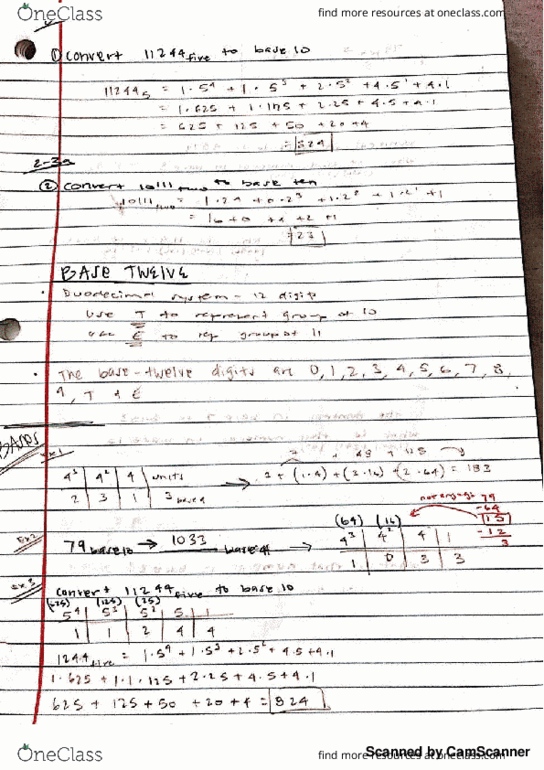 OneClass
find more resources at oneclass.com
① Convert 11244 five to base 10
11244₅ = 1·5⁴ + 1·5³ + 2·5² + 4·5¹ + 4·1
= 1·625 + 1·125 + 2·25 + 4·5 + 4·1
= 625 + 125 + 50 + 20 + 4
= 824
2-3a
② Convert 10111 two to base ten
10111 two = 1·2⁴ + 0·2³ + 1·2² + 1·2¹ + 1
= 16 + 0 + 4 + 2 + 1
= 23
BASE TWELVE
· Duodecimal system - 12 digits
use T to represent group of 10
use E to rep group of 11
· The base-twelve digits are 0, 1, 2, 3, 4, 5, 6, 7, 8,
9, T & E
BASES
Ex 1
3 + 4 + 48 + 128
4³ 4² 4 units
2 3 1 3 base 4
→ 3 + (1·4) + (3·16) + (2·64) = 183
not enough 79
-64
15
-12
3
(64) (16)
Ex 2
79 base 10 → 1033 base 4 → 4³ 4² 4 1
1 0 3 3
Ex 3
Convert 11244 five to base 10
(625) (125) (25)
5⁴ 5³ 5² 5 1
1 1 2 4 4
1244 five = 1·5⁴ + 1·5³ + 2·5² + 4·5 + 4·1
1·625 + 1·1·125 + 2·25 + 4·5 + 4·1
625 + 125 + 50 + 20 + 4 = 824
OneClass
find more resources at oneclass.com
Scanned by CamScanner